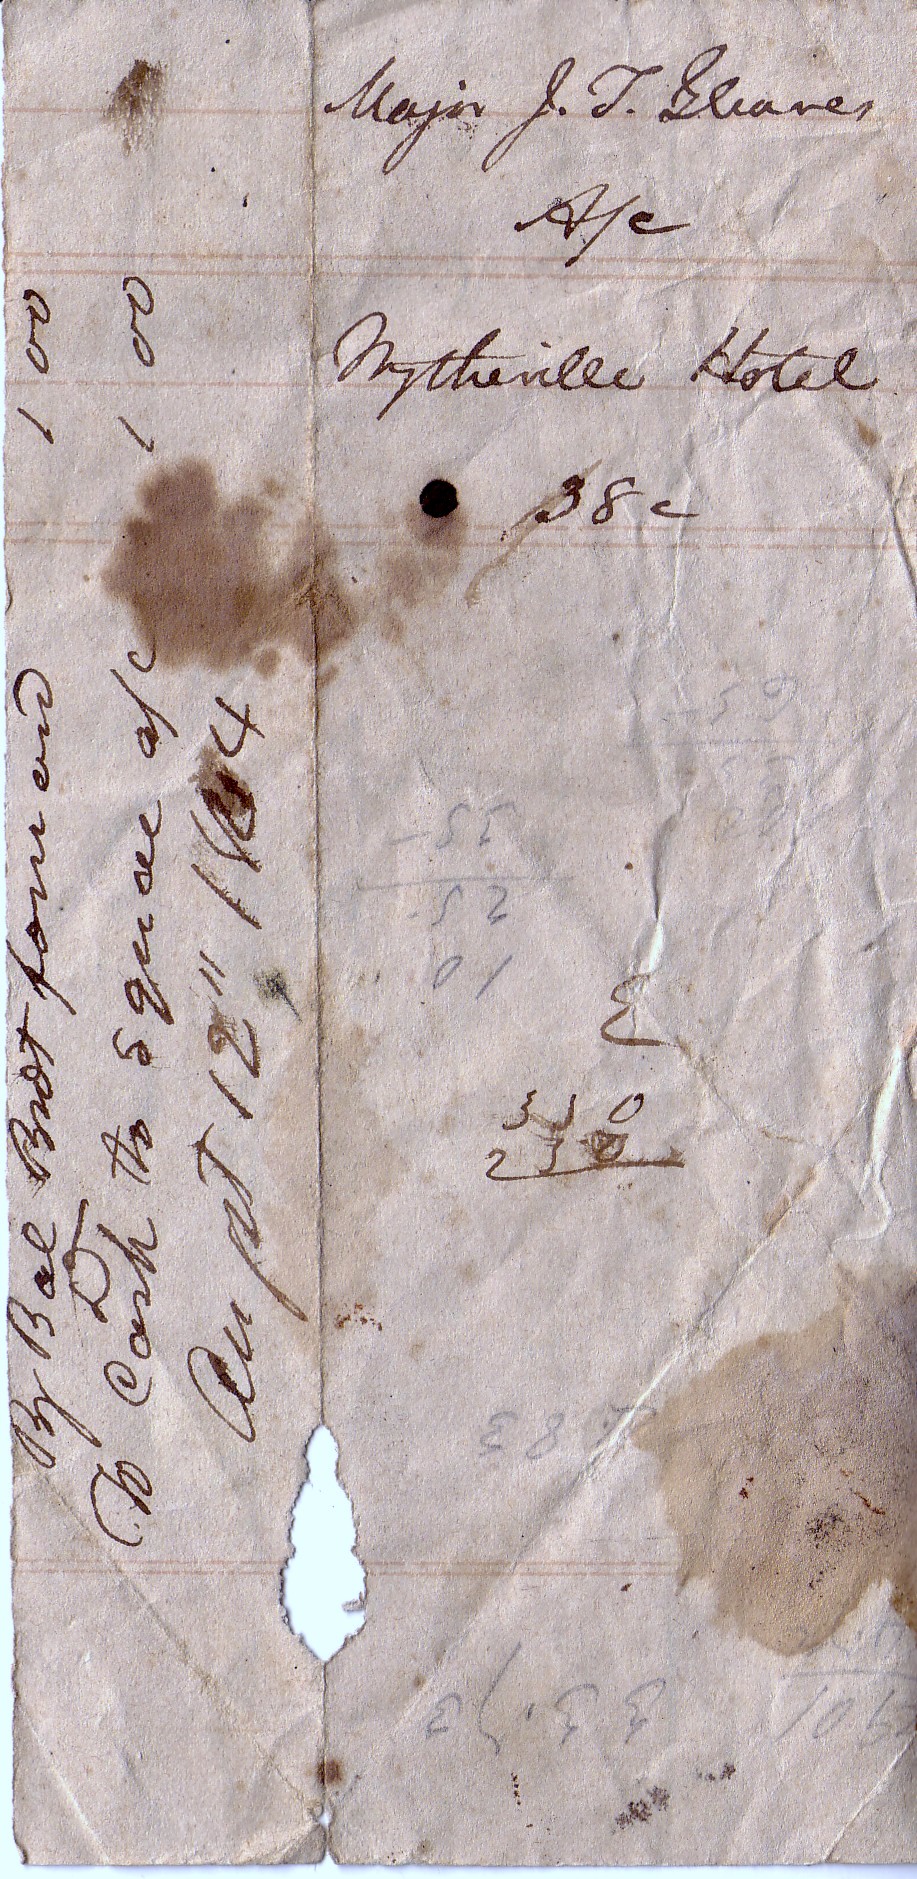 Major J. T. Gleaves
A/c
Wytheville Hotel
38 c
By Bal Brot forward 1 00
To Cash to square a/c 1 00
August 12" 1864
35-
25-
10
350
83
33.) 3